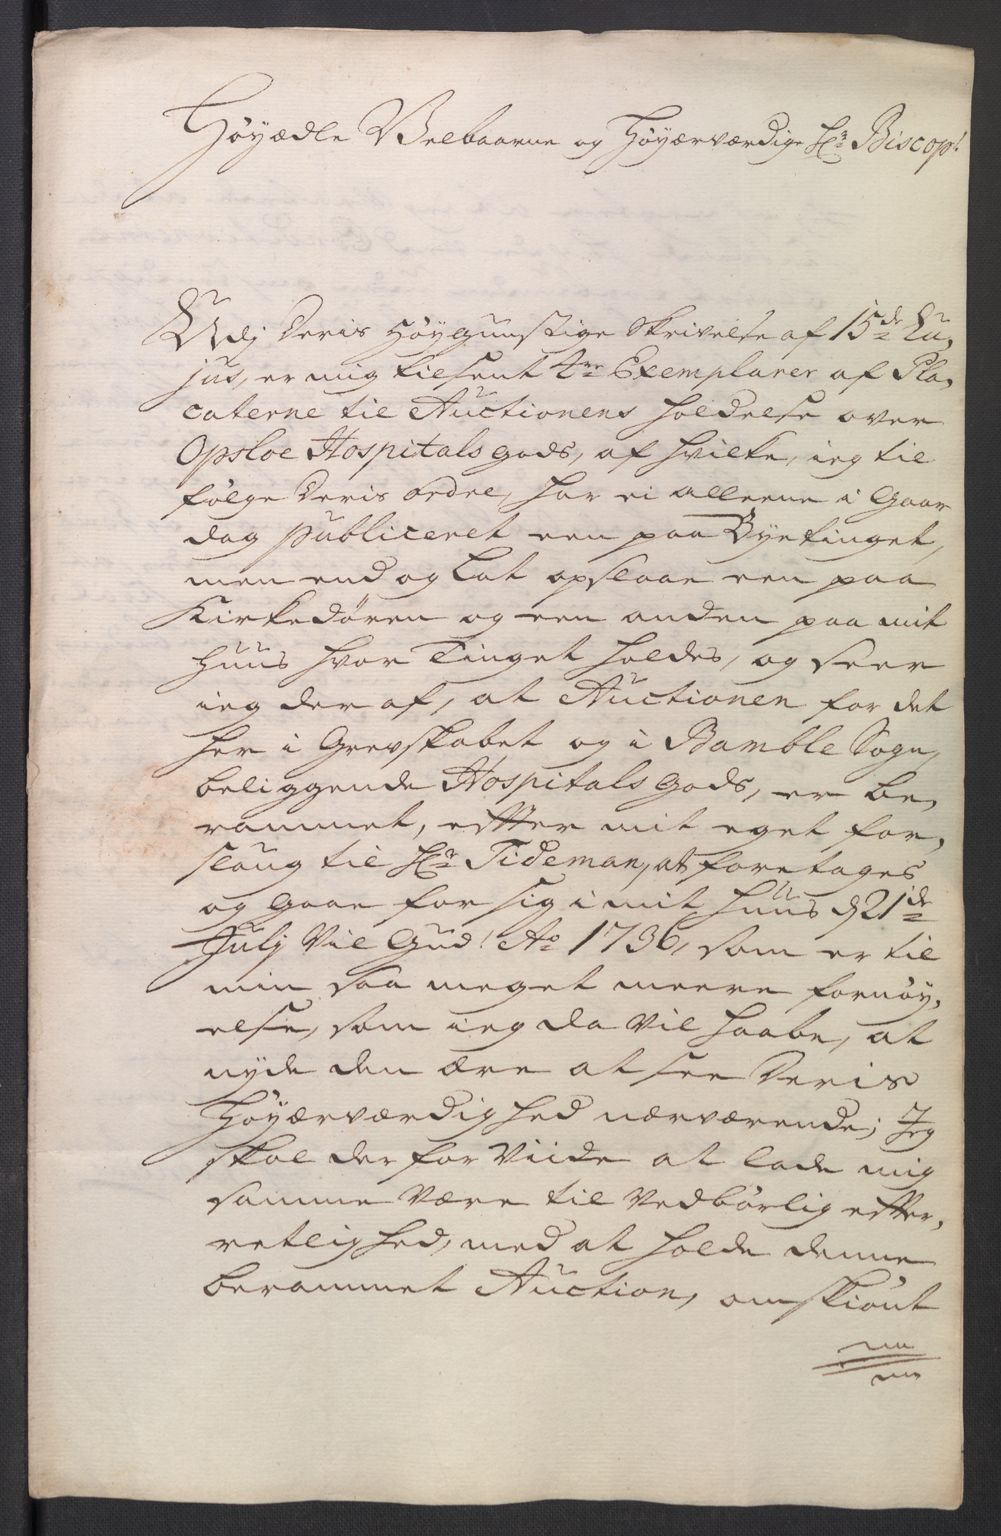 Høyædle Velbaarne og Høyærværdige Hr. Biscop!
Udj Deris Høygunstige Skrivelse af 15de Hu,
jus, er mig tilsent 4re Exemplarer af Pla,
caterne til Auctionens holdelse over
Opsloe Hospitals gods, af hvilke, ieg til
følge Deris ordre, har ei alleene i Gaar
dag publiceret een paa Byetinget,
men end og lat opslaae een paa
Kirkedøren og een anden paa mit
Huus hvor Tinget holdes, og seer
ieg der af, at Auctionen for det
her i Grevskabet og i Bamble Sogn,
beliggende Hospitals gods, er be,
rammet, effter mit eget for,
slaug til Hr. Tideman, at foretages
og gaae for sig i mit Huus d 21de
Julj Vil Gud! Ao 1736, som er til
min saa meget meere fornøy,
else, som ieg da vil haabe, at
nyde den ære at see Deris
Høyærværdighed nærværende; Jeg
skal der for viide at lade mig
samme være til vedbørlig effter,
retlighed, med at holde denne
berammet Auction, omskiønt
nu
nu